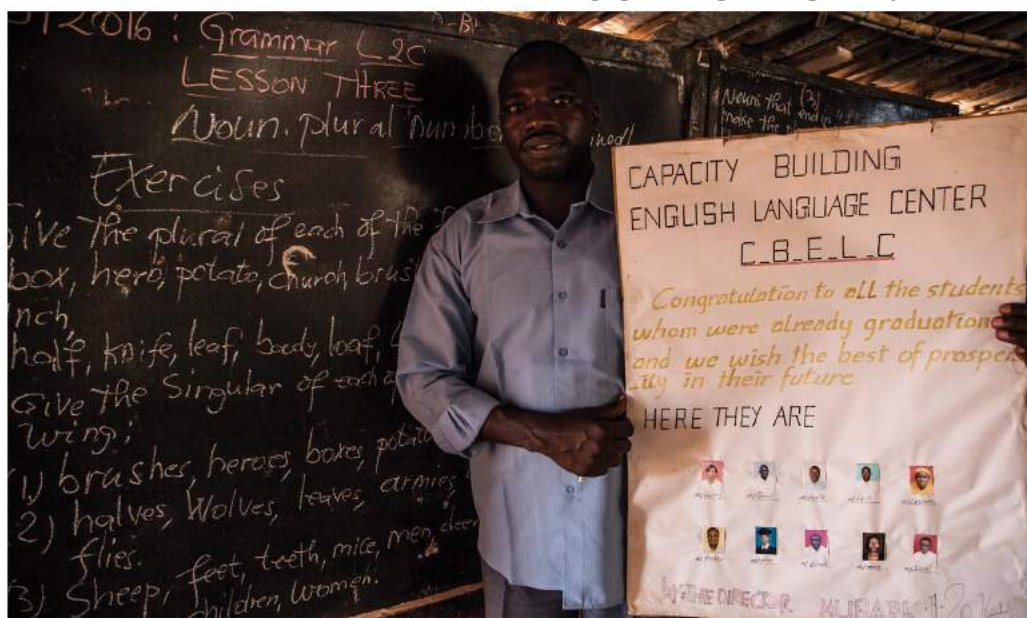 2016: Grammar L2C
LESSON THREE
Noun. plural numbe
Exercises
Give the plural of each of the
box, hero, potato, church, brus
nch,
half, knife, leaf, body, loaf,
Give the Singular of each
wing;
1) brushes, heroes, boxes, potato
2) halves, Wolves, leaves, armies,
flies.
3) Sheep, feet, teeth, mice, men, deer
children, women.
(3)
Nouns that end in
make the
CAPACITY BUILDING
ENGLISH LANGUAGE CENTER
C_B_E_L_C
Congratulation to all the students
whom were already graduation
and we wish the best of prosper
_ity in their future
HERE THEY ARE
THE DIRECTOR MUBARK